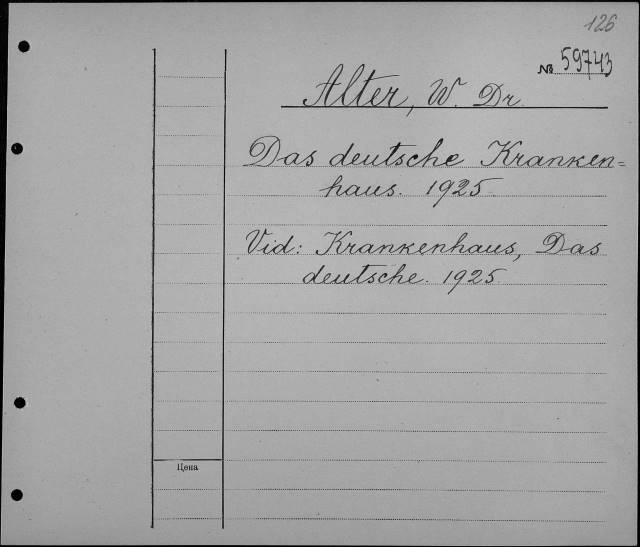 126
№ 59743
Alter, W. Dr
Das deutsche Kranken=
haus. 1925
Vid: Krankenhaus, Das
deutsche. 1925
Цена